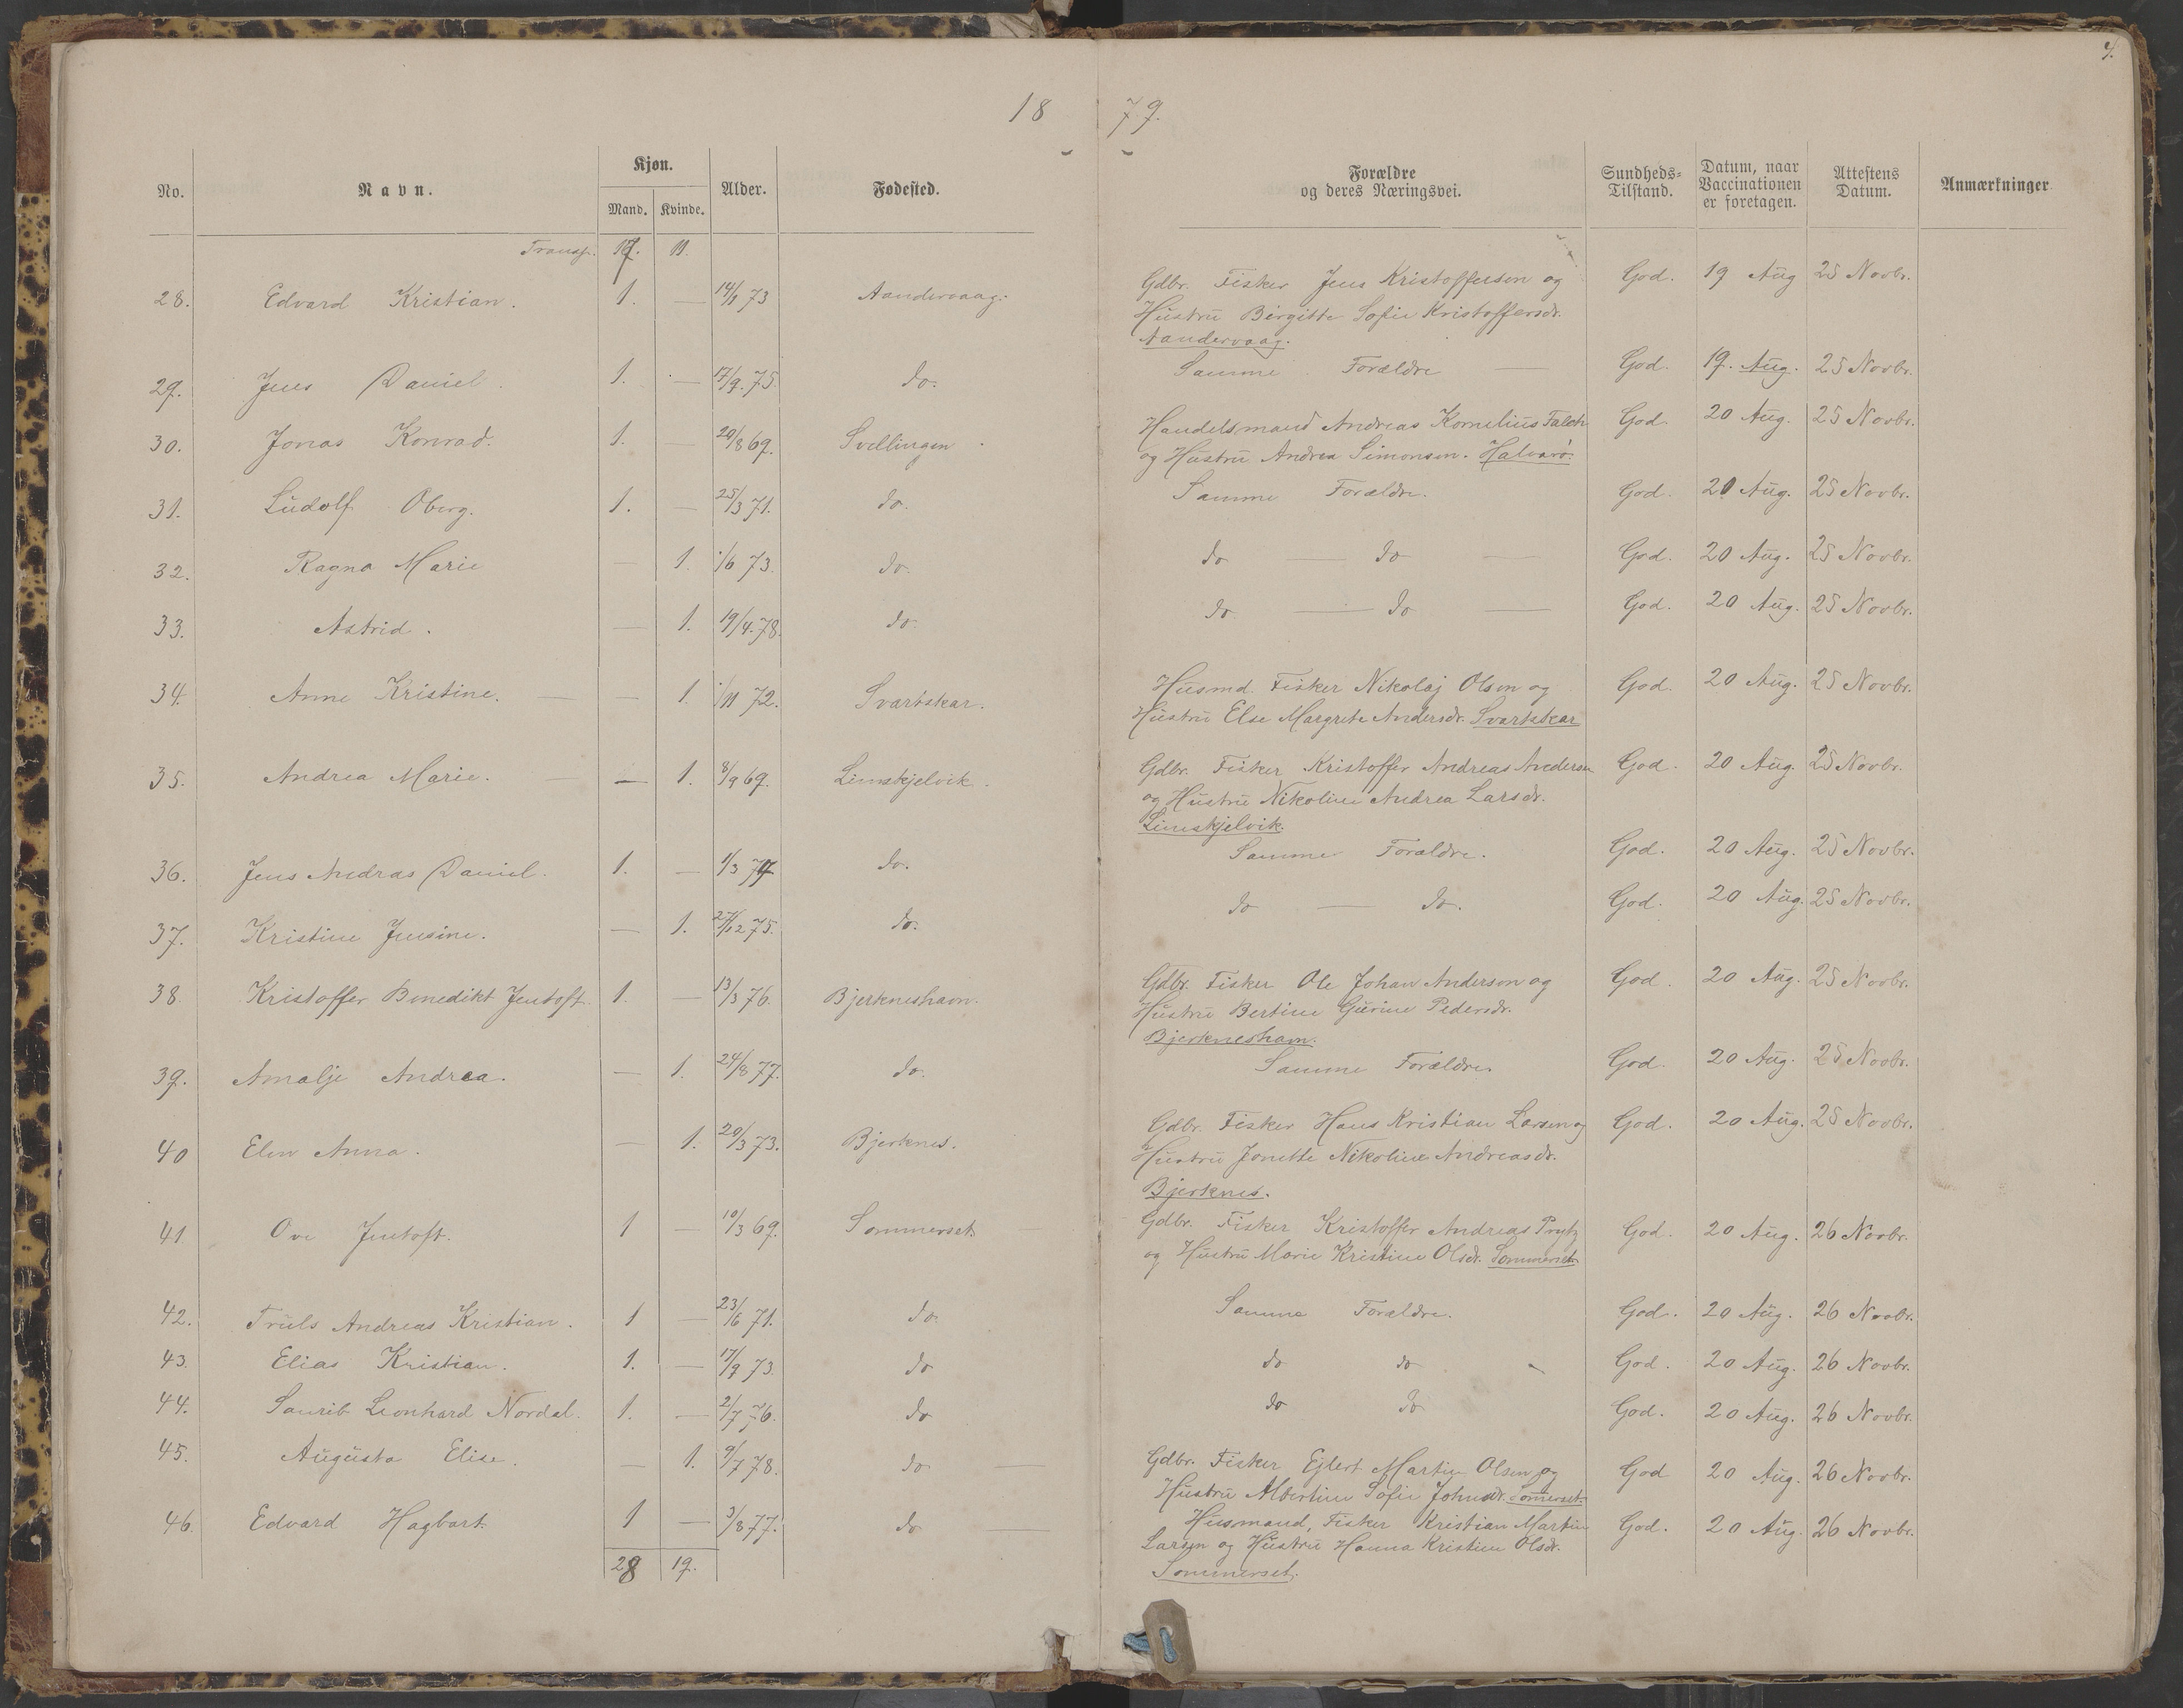 4.
18 79.
No. Navn. Kjøn. Alder. Fødested. Forældre og deres Næringsvei. Sundheds-Tilstand. Datum, naar Vaccinationen er foretagen. Attestens Datum. Anmærkninger
Mand. Kvinde.
Transp. 17. 11.
28. Edvard Kristian. 1. — 14/1 73 Aandervaag. Gdbr. Fisker Jens Kristoffersen og God. 19 Aug 25 Novbr.
Hustru Birgitte Sofie Kristoffersdr.
Aandervaag.
29. Jens Daniel. 1. — 17/9. 75. do. Samme Forældre — God. 19. Aug. 25 Novbr.
30. Jonas Konrad. 1. — 20/8 69. Svellingen. Handelsmand Andreas Kornelius Falch God. 20 Aug. 25 Novbr.
og Hustru Andrea Simonsen. Halvarö.
31. Ludolf Oberg. 1. — 25/3 71. do. Samme Forældre. God. 20 Aug. 25 Novbr.
32. Ragna Marie — 1. /6 73. do. do — do — God. 20 Aug. 25 Novbr.
33. Astrid. — 1. 19/4. 78. do. do — do — God. 20 Aug. 25 Novbr.
34. Anne Kristine. — — 1. /11 72. Svartskar. Husmd. Fisker Nikolaj Olsen og God. 20 Aug. 25 Novbr.
Hustru Else Margrete Andersdr. Svartskar
35. Andrea Marie. — — 1. 8/9 69. Limskjelvik. Gdbr. Fisker Kristoffer Andreas Anderson God. 20 Aug. 25 Novbr.
og Hustru Nikoline Andrea Larsdr.
Limskjelvik.
36. Jens Andras Daniel. 1. — 1/3 74 do. Samme Forældre. God. 20 Aug. 25 Novbr.
37. Kristine Jensine. — 1. 27/12 75. do. do — do. God. 20 Aug. 25 Novbr.
38. Kristoffer Benedikt Jentoft. 1. — 13/3 76. Bjerkneshavn. Gdbr. Fisker Ole Johan Anderson og God. 20 Aug. 25 Novbr.
Hustru Bertine Gurine Pedersdr.
Bjerkneshavn.
39. Amalje Andrea. — 1. 24/8 77. do. Samme Forældre. God. 20 Aug. 25 Novbr.
40 Elen Anna. — 1. 20/3 73. Bjerknes. Gdbr. Fisker Hans Kristian Larsen og God. 20 Aug. 25 Novbr.
Hustru Jonette Nikoline Andreasdr.
Bjerknes.
41. Ove Jentoft. 1 — 10/3 69. Sommerset. Gdbr. Fisker Kristoffer Andreas Prytz God. 20 Aug. 26 Novbr.
og Hustru Marie Kristine Olsdr. Sommerset
42. Truls Andreas Kristian. 1 — 23/6 71. do. Samme Forældre. God. 20 Aug. 26 Novbr.
43. Elias Kristian. 1. — 17/9 73. do do do God. 20 Aug. 26 Novbr.
44. Leonhard Nordal. 1. — 2/7 76. do do do God. 20 Aug. 26 Novbr.
45. Augusta Elise. — 1. 9/7 78. do — Gdbr. Fisker Ejlert Martin Olsen og God 20 Aug. 26 Novbr.
Hustru Albertine Sofie Johnsdr. Sommerset.
46. Edvard Hagbart. 1 — 3/8 77. do — Husmand, Fisker Kristian Martin God. 20 Aug. 26 Novbr.
Larsen og Hustru Hanna Kristine Olsdr.
28 19. Sommerset.